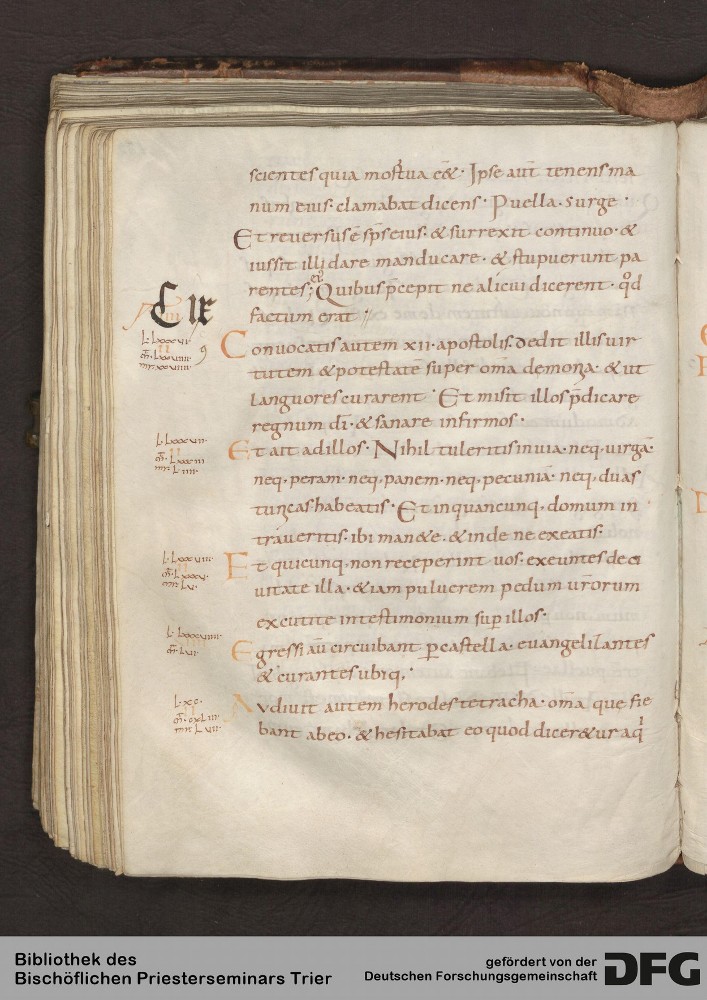 scientes quia mortua eēt. Ipse aut tenens ma
num eius. clamabat dicens. Puella. surge.
Et reuersus ē sps eius. & surrexit continuo. &
iussit illi dare manducare. & stupuerunt pa
rentes ei. Quibus pcepit ne alicui dicerent. qd
factum erat
C IX
L. LXXXVI
Conuocatis autem XII. apostolis. dedit illis uir
tutem & potestatē super omia demonia. & ut
languores curarent. Et misit illos pdicare
regnum di. & sanare infirmos.
L. LXXXVII.
Et ait ad illos. Nihil tuleritis in uia. neq. uirgā.
neq. peram. neq. panem. neq. pecuniā. neq. duas
tunicas habeatis. Et in quancunq. domum in
traueritis. ibi man&e. & inde ne exeatis.
L. LXXXVIII.
Et quicunq. non receperint uos. exeuntes de ci
uitate illa. & iam puluerem pedum urorum
excutite in testimonium sup illos.
L. LXXXVIIII.
m. LVII.
Egressi au circuibant p castella. euangelizantes
& curantes ubiq.
L. XC.
m. CXLIII
mr LVII.
Audiuit autem herodes tetracha. omia que fie
bant ab eo. & hesitabat eo quod dicer&ur a qi
Bibliothek des
Bischöflichen Priesterseminars Trier
gefördert von der
Deutschen Forschungsgemeinschaft
DFG